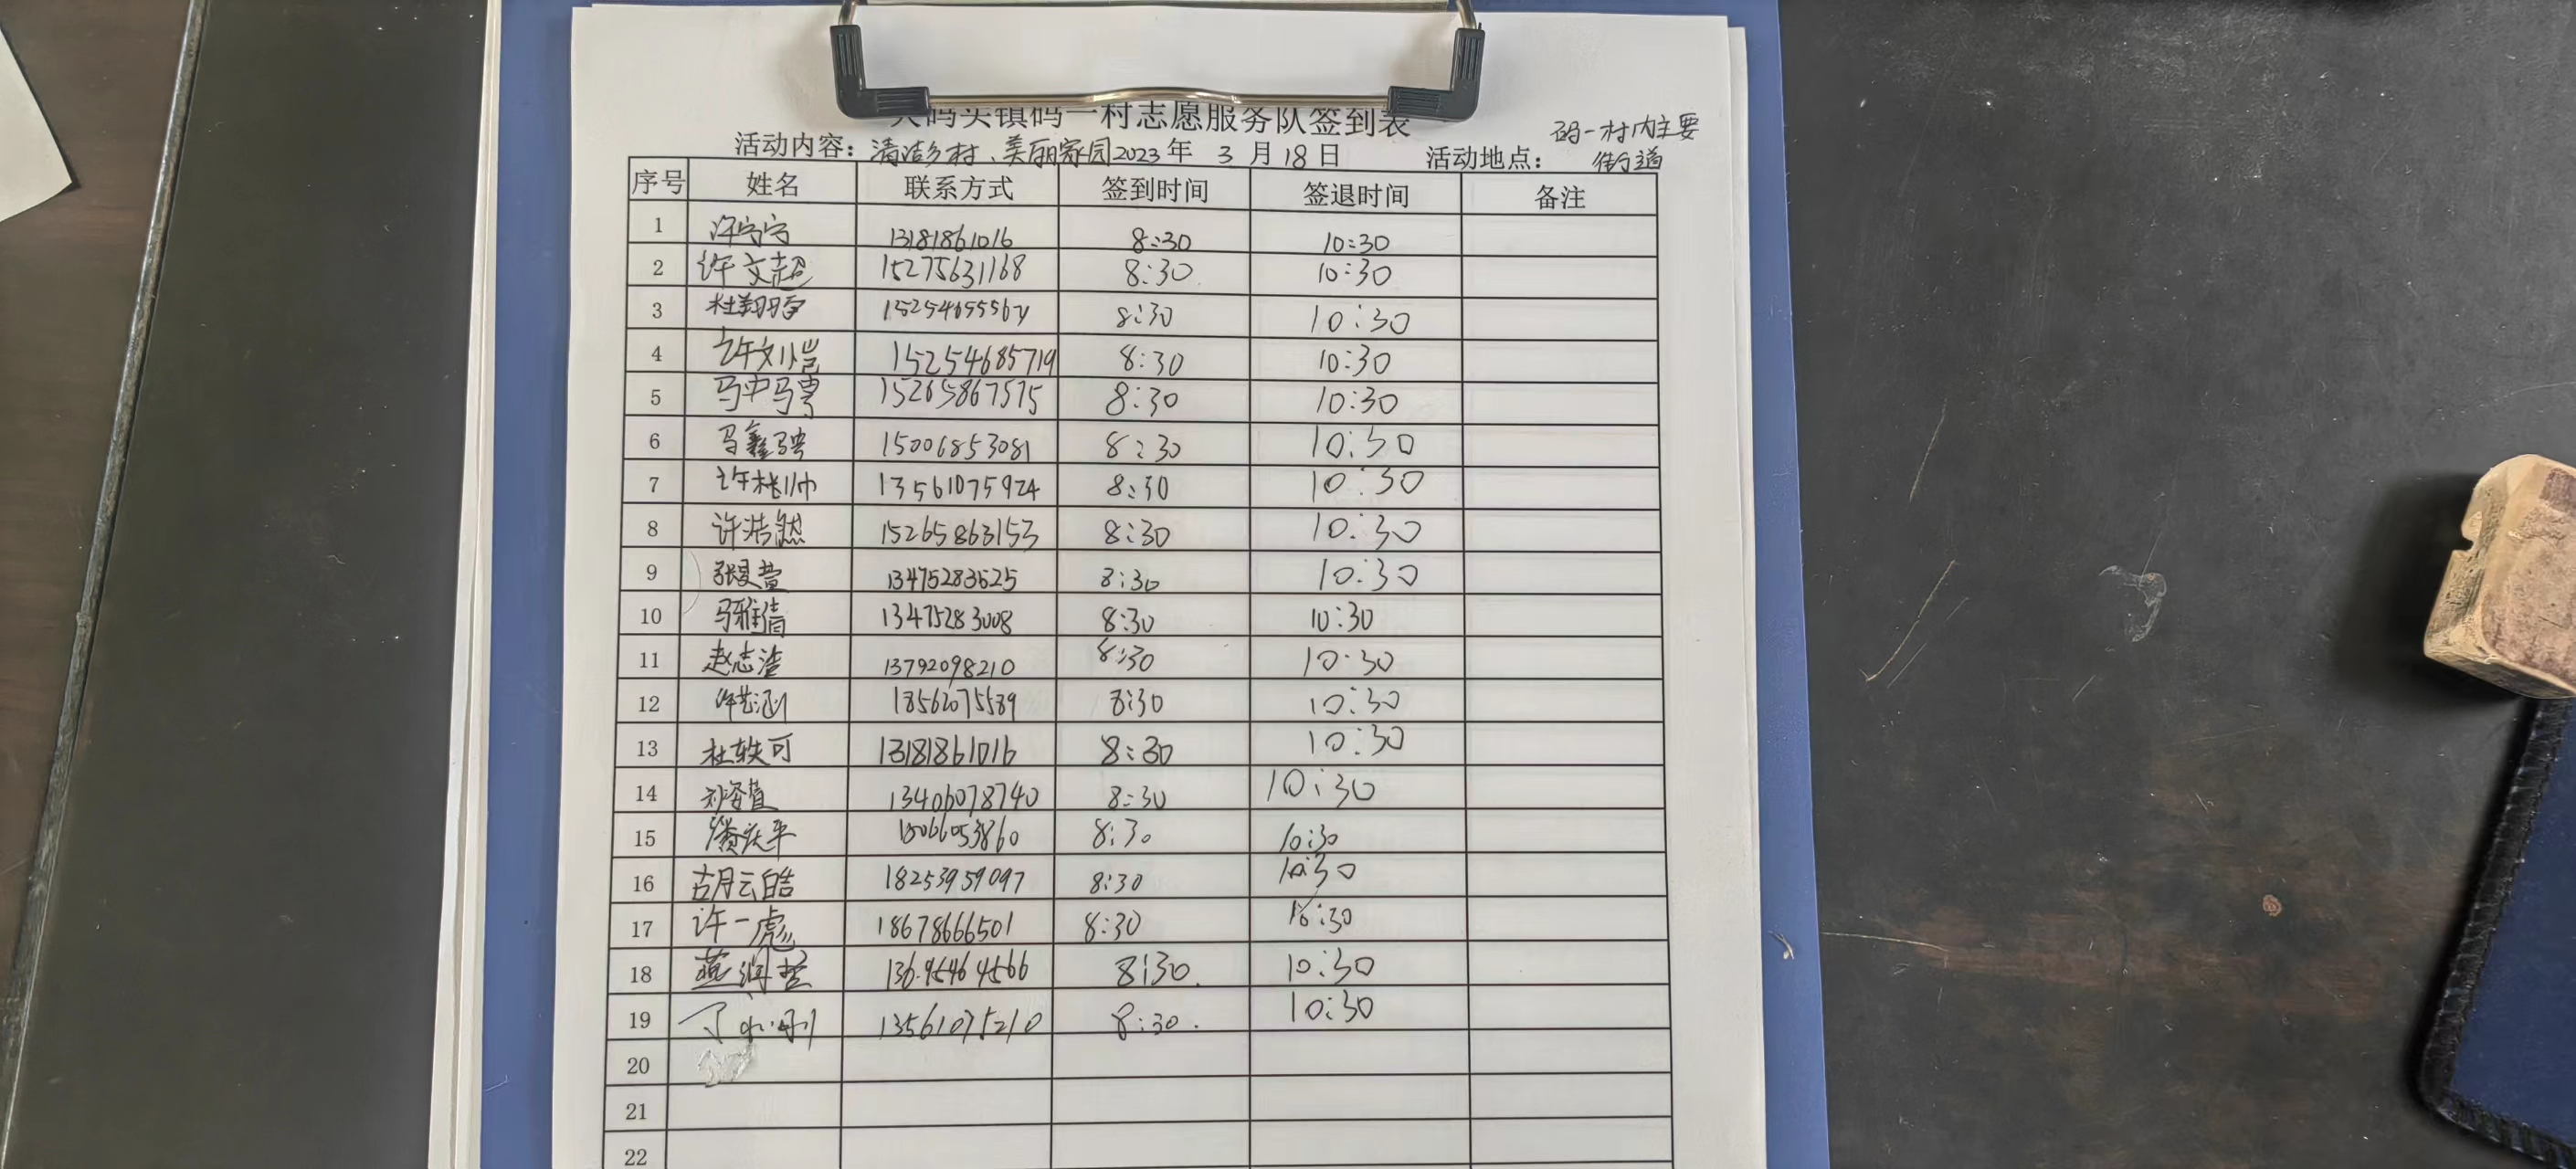 大码头镇码一村志愿服务队签到表
码一村内主要
活动内容：清洁乡村、美丽家园2023年 3 月 18 日 活动地点： 街道
序号 姓名 联系方式 签到时间 签退时间 备注
1 许宁宁 13181861016 8:30 10:30
2 许文超 15275631168 8:30 10:30
3 8:30 10:30
4 许文恺 15254685719 8:30 10:30
5 马中骋 15265867575 8:30 10:30
6 马鑫骋 15006853081 8:30 10:30
7 许栈帅 13561075924 8:30 10:30
8 许浩然 15265863153 8:30 10:30
9 13475283625 8:30 10:30
10 马雅倩 13475283008 8:30 10:30
11 13792098210 8:30 10:30
12 许艺涵 18562075589 8:30 10:30
13 杜轶可 13181861016 8:30 10:30
14 13406078740 8:30 10:30
15 8:30 10:30
16 胡云皓 18253959097 8:30 10:30
17 许一彪 18678666501 8:30 10:30
18 燕润哲 8:30. 10:30
19 13561075210 8:30. 10:30
20
21
22